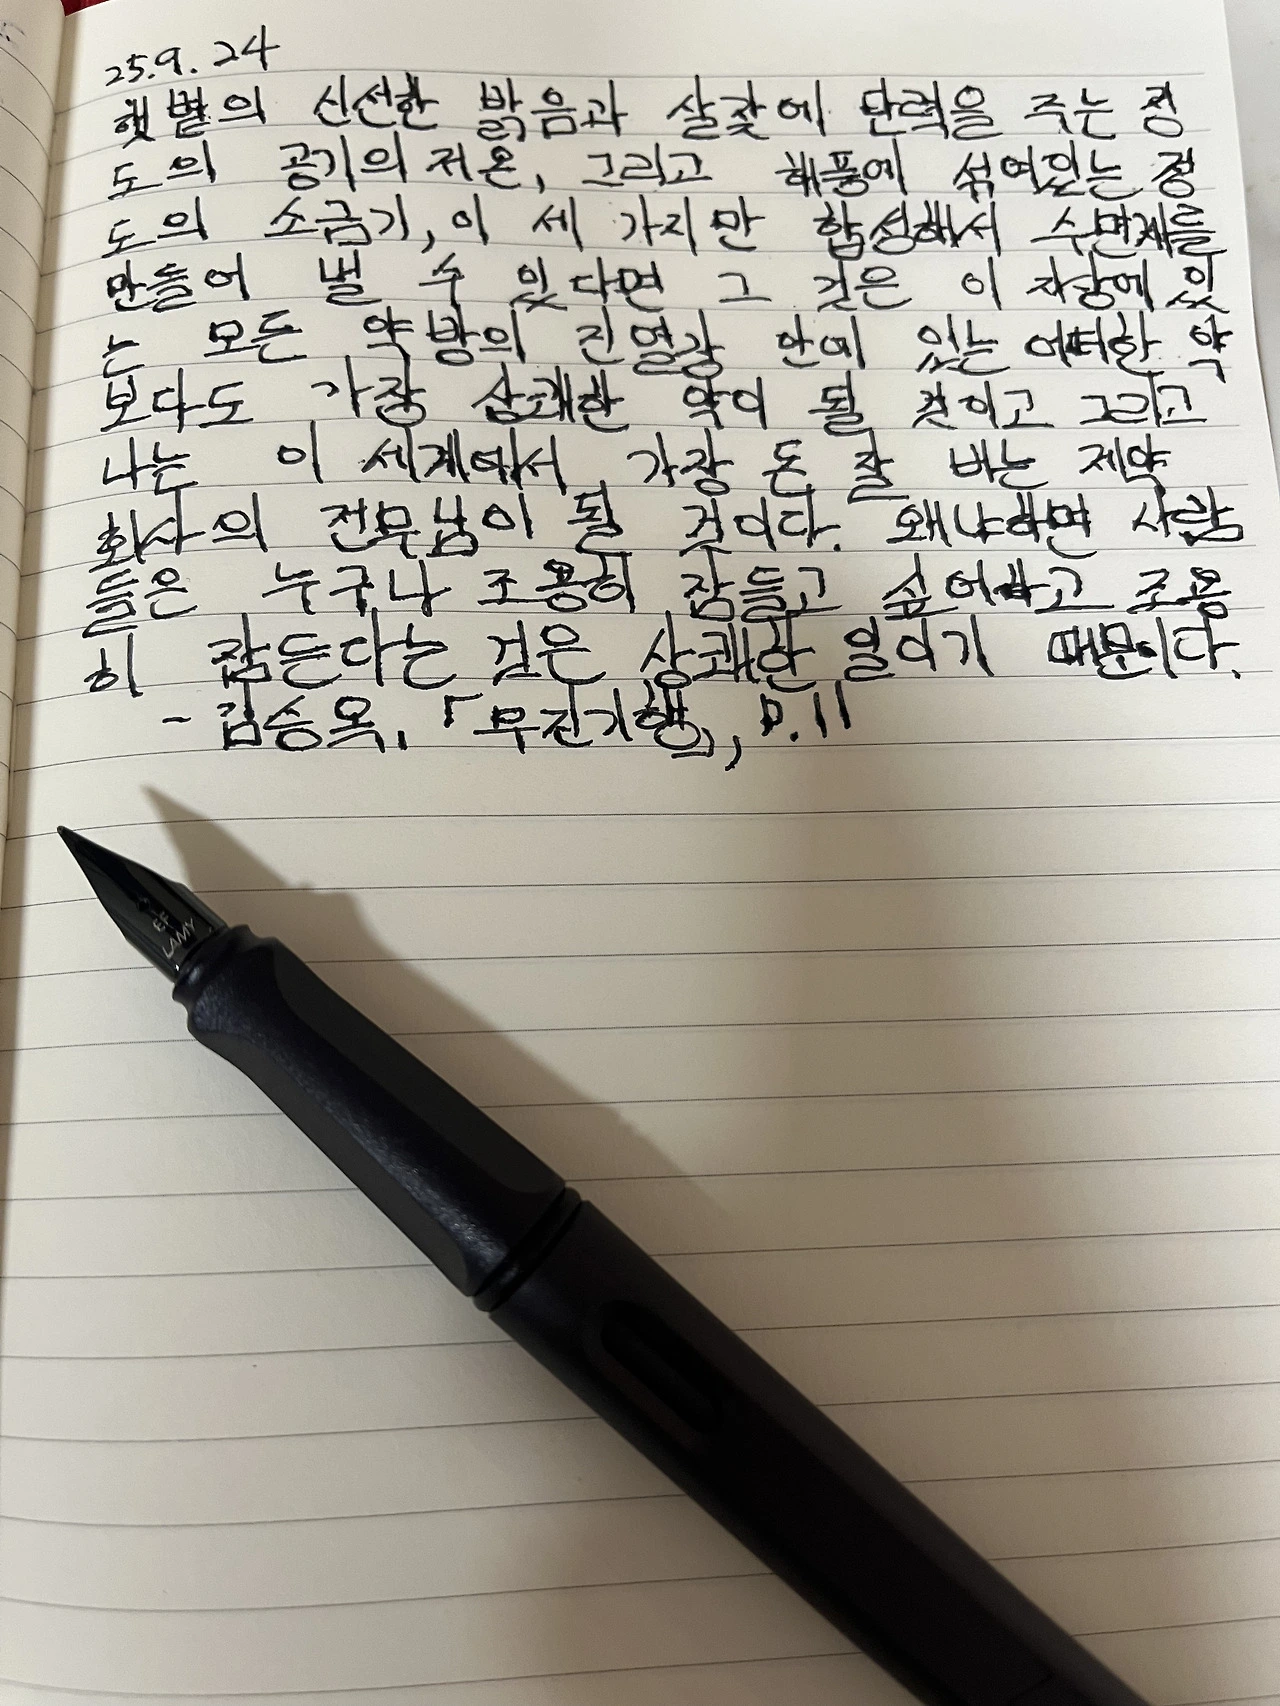 25.9.24
햇볕의 신선한 밝음과 살갗에 탄력을 주는 정
도의 공기의 저온, 그리고 해풍에 섞여있는 정
도의 소금기, 이 세 가지만 합성해서 수면제를
만들어 낼 수 있다면 그 것은 이 지상에 있
는 모든 약방의 진열장 안에 있는 어떠한 약
보다도 가장 상쾌한 약이 될 것이고 그리고
나는 이 세계에서 가장 돈 잘 버는 제약
회사의 전무님이 될 것이다. 왜냐하면 사람
들은 누구나 조용히 잠들고 싶어하고 조용
히 잠든다는 것은 상쾌한 일이기 때문이다.
- 김승옥, 「무진기행」, p.11
EF
LAMY